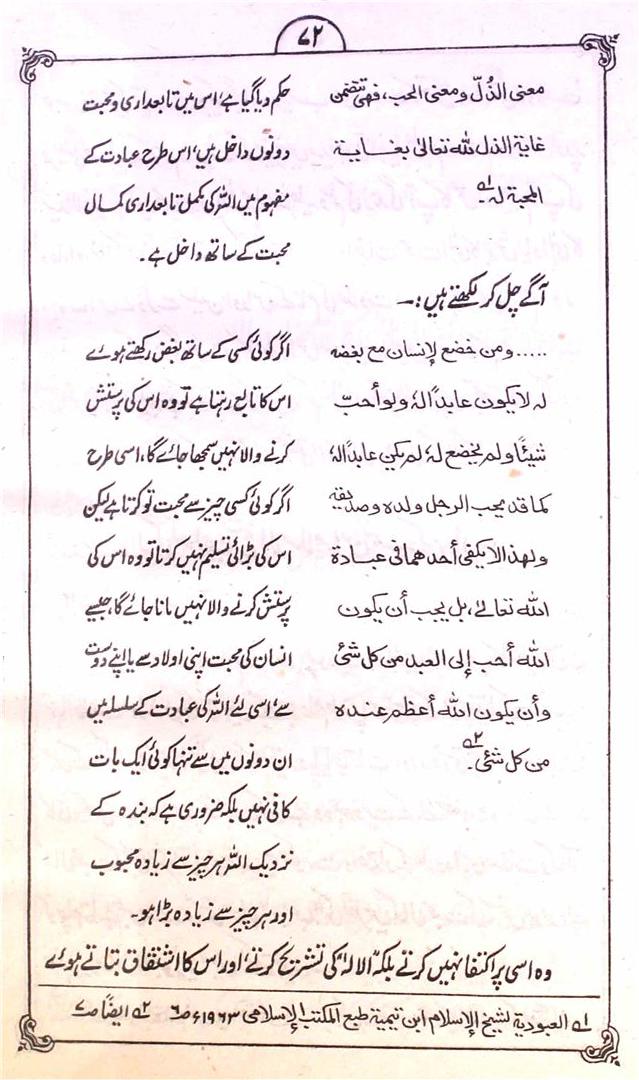 ۷۲
معنى الذُلّ ومعنى الحب، فهي تتضمن
غاية الذل لله تعالىٰ بغاية
المحبة لہ ؂۱
حکم دیا گیا ہے، اس میں تابعداری و محبت
دونوں داخل ہیں، اس طرح عبادت کے
مفہوم میں اللہ کی مکمل تابعداری کمال
محبت کے ساتھ داخل ہے۔
آگے چل کر لکھتے ہیں:—
..... ومن خضع لإنسان مع بغضه
له لا يكون عابداً لهٗ ولو أحبّ
شيئًا ولم يخضع لهٗ لم يكن عابداً لهٗ
كما قد يحب الرجل ولده وصديقه
ولهذا لا يكفى أحدهما فى عبادة
الله تعالىٰ، بل يجب أن يكون
الله أحب إلى العبد من كل شئ
وأن يكون الله أعظم عنده
من كل شئ ؂۲
اگر کوئی کسی کے ساتھ بغض رکھتے ہوئے
اس کا تابع رہتا ہے تو وہ اس کی پرستش
کرنے والا نہیں سمجھا جائے گا، اسی طرح
اگر کوئی کسی چیز سے محبت تو کرتا ہے لیکن
اس کی بڑائی تسلیم نہیں کرتا تو وہ اس کی
پرستش کرنے والا نہیں مانا جائے گا، جیسے
انسان کی محبت اپنی اولاد سے یا اپنے دوست
سے، اسی لئے اللہ کی عبادت کے سلسلہ میں
ان دونوں میں سے تنہا کوئی ایک بات
کافی نہیں بلکہ ضروری ہے کہ بندہ کے
نزدیک اللہ ہر چیز سے زیادہ محبوب
اور ہر چیز سے زیادہ بڑا ہو۔
وہ اسی پر اکتفا نہیں کرتے بلکہ "الالہ" کی تشریح کرتے، اور اس کا اشتقاق بتاتے ہوئے
؂۱ العبودية لشيخ الإسلام ابن تيمية طبع المكتب الإسلامى ۱۹۶۳ء ص۶ ؂۲ ايضًا ص۷